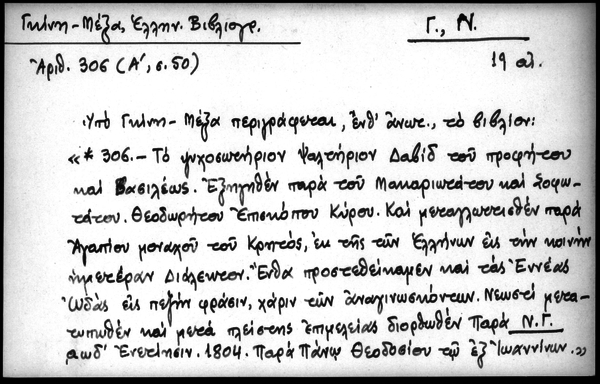 Γκίνη-Μέξα, Ἑλλην. Βιβλιογρ.
Γ., Ν.
Ἀριθ. 306 (Α', σ. 50)
19 αἰ.
Ὑπὸ Γκίνη-Μέξα περιγράφεται, ἔνθ' ἀνωτ., τὸ βιβλίον:
«* 306.- Τὸ ψυχοσωτήριον Ψαλτήριον Δαβίδ τοῦ προφήτου
καὶ Βασιλέως. Ἐξηγηθὲν παρὰ τοῦ Μακαριωτάτου καὶ Σοφω-
τάτου. Θεοδωρήτου Ἐπισκόπου Κύρου. Καὶ μεταγλωττισθὲν παρὰ
Ἀγαπίου μοναχοῦ τοῦ Κρητός, ἐκ τῆς τῶν Ἑλλήνων εἰς τὴν κοινὴν
ἡμετέραν Διάλεκτον. Ἔνθα προστεθείκαμεν καὶ τὰς Ἐννέας
Ὠδὰς εἰς πεζὴν φράσιν, χάριν τῶν ἀναγινωσκόντων. Νεωστὶ μετα-
τυπωθὲν καὶ μετὰ πλείστης ἐπιμελείας διορθωθὲν Παρὰ Ν.Γ.
αωδ' Ἐνετίησιν. 1804. Παρὰ Πάνῳ Θεοδοσίου τῷ ἐξ Ἰωαννίνων.»